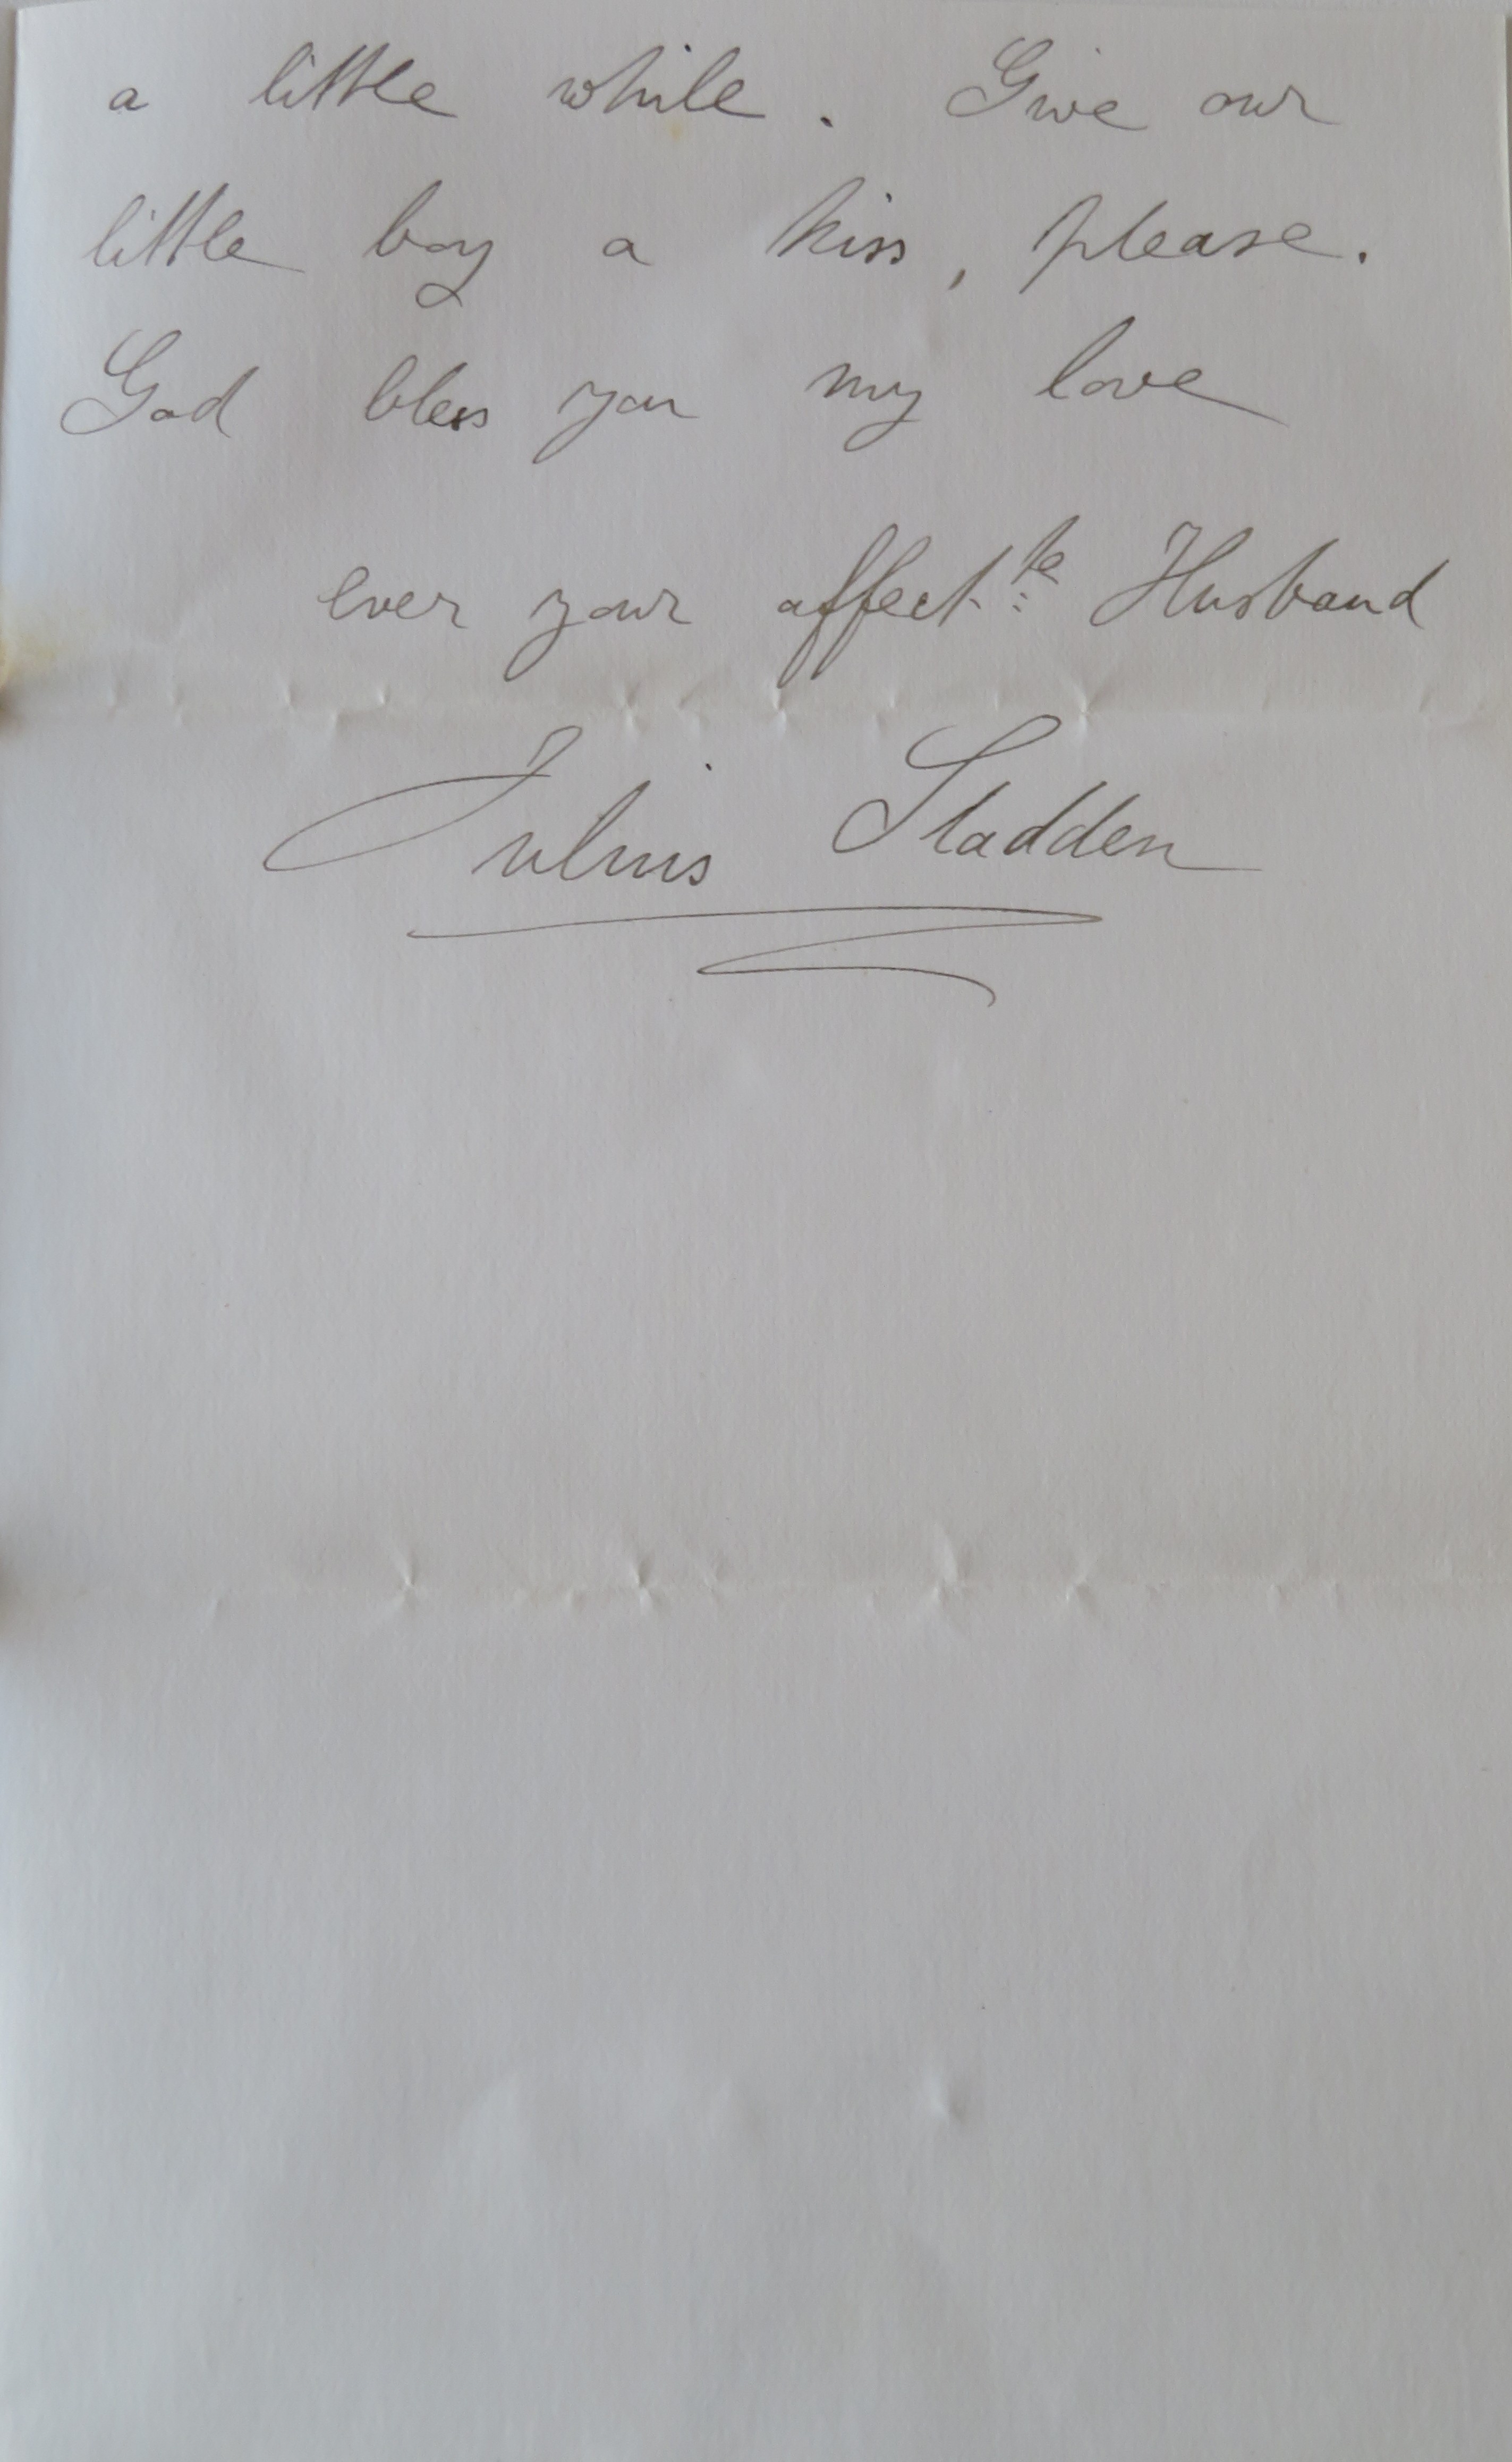 a little while. Give our
little boy a kiss, please.
God bless you my love
ever your affect:te Husband
Julius Sladden